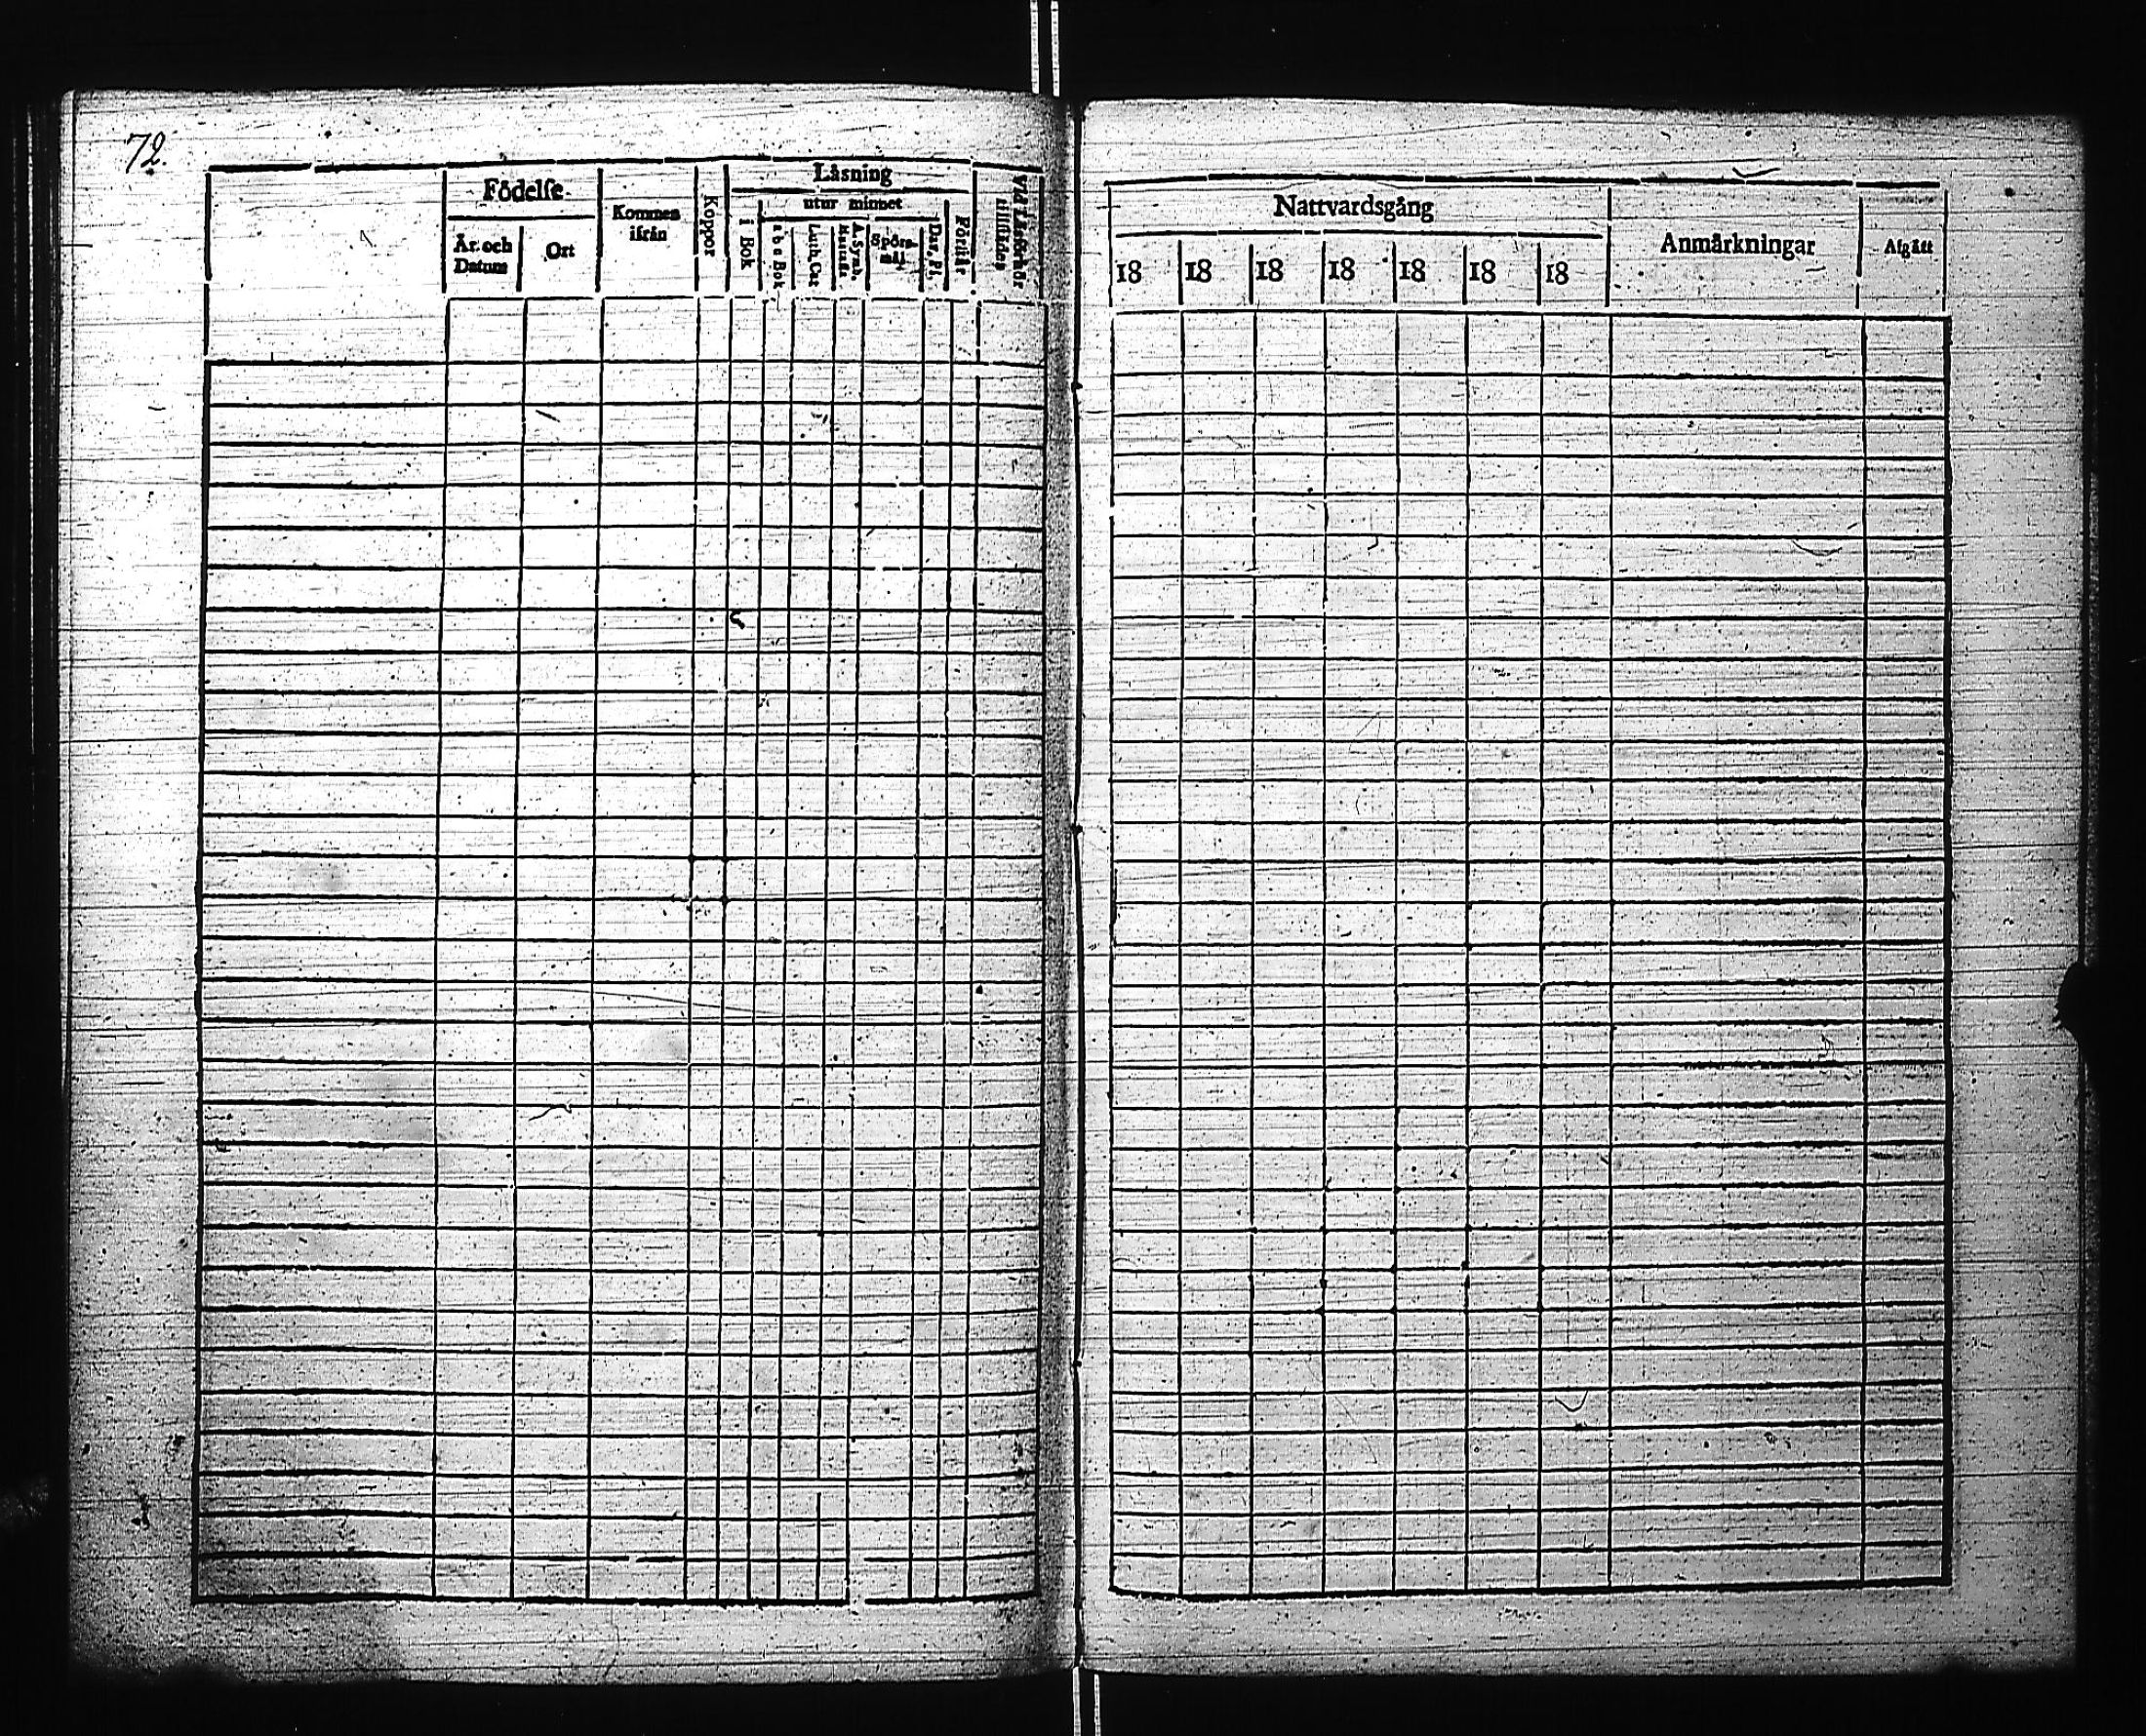 72.
Födelse
År och Datum
Ort
Kommen ifrån
Koppor
Läsning
i Bok
utur minnet
a b c Bok
Luth. Cat.
A. Symb.
Spörsmål
Dav. Ps.
Förstår
Vid Läsförhör tillstädes
Nattvardsgång
18 18 18 18 18 18 18
Anmärkningar
Afgått